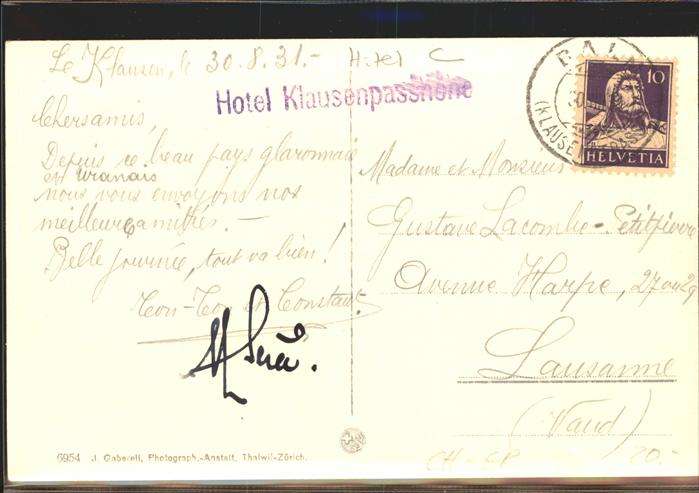 Le Klausen, le 30.8.31.- Hotel C
Hotel Klausenpasshöhe
Chers amis,
Depuis ce beau pays glaronnais
et uranais
nous vous envoyons nos
meilleures amitiés. -
Belle journée, tout va bien!
Ton-Ton et Constant.
Madame et Monsieur
Gustave Lacombe-Petitpierre
Avenue Harpe, 27 ou 29
Lausanne
(Vaud)
BALM
30
(KLAUSEN
10
HELVETIA
6954 J. Gaberell, Photograph.-Anstalt, Thalwil-Zürich.
CH-CP 20.-